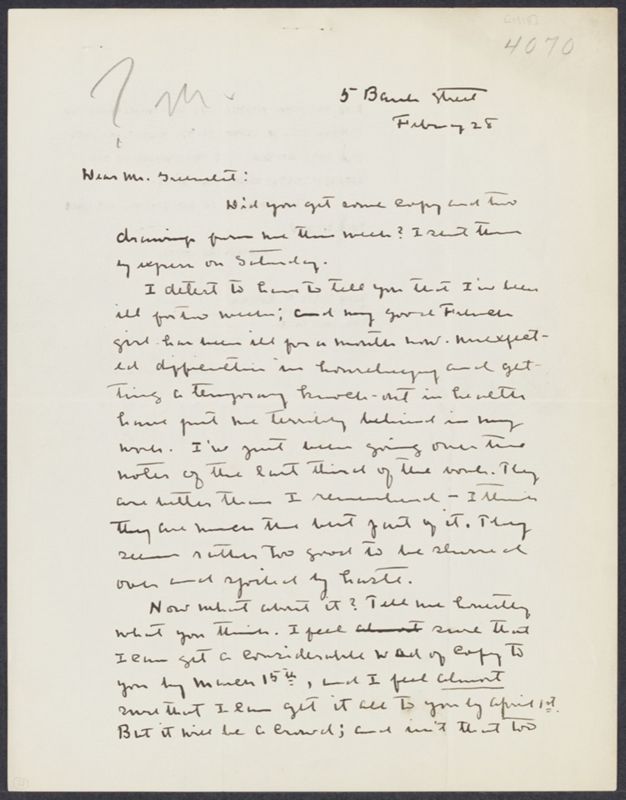 4070
5 Bank Street
February 28
Dear Mr. Greenslet:
Did you get some copy and two
drawings from me this week? I sent them
by express on Saturday.
I detest to have to tell you that I've been
ill for two weeks; and my good French
girl has been ill for a month now. Unexpect-
ed difficulties in housekeeping and get-
ting a temporary knock-out in health
have put me terribly behind in my
work. I've just been going over the
notes of the last third of the book. They
are better than I remembered – I think
they are much the best part of it. They
seem rather too good to be slurred
over and spoiled by haste.
Now what about it? Tell me honestly
what you think. I feel almost sure that
I can get a considerable wad of copy to
you by March 15th, and I feel almost
sure that I can get it all to you by April 1st.
But it will be a crowd; and isn't that too